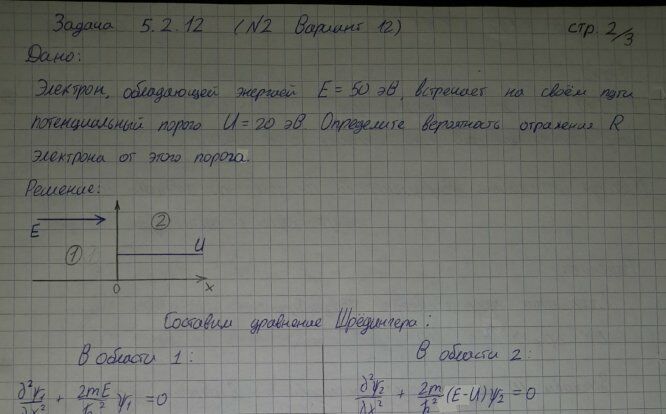 Задача 5.2.12 (N2 Вариант 12) стр. 2/3
Дано:
Электрон, обладающей энергией E = 50 эВ, встречает на своём пути
потенциальный порого U = 20 эВ. Определите вероятность отражения R
электрона от этого порога.
Решение:
E ① ② U
0 x
Составим уравнение Шрёдингера:
В области 1: В области 2:
∂²ψ₁/∂x² + 2mE/ħ² ψ₁ = 0 ∂²ψ₂/∂x² + 2m/ħ² (E-U)ψ₂ = 0